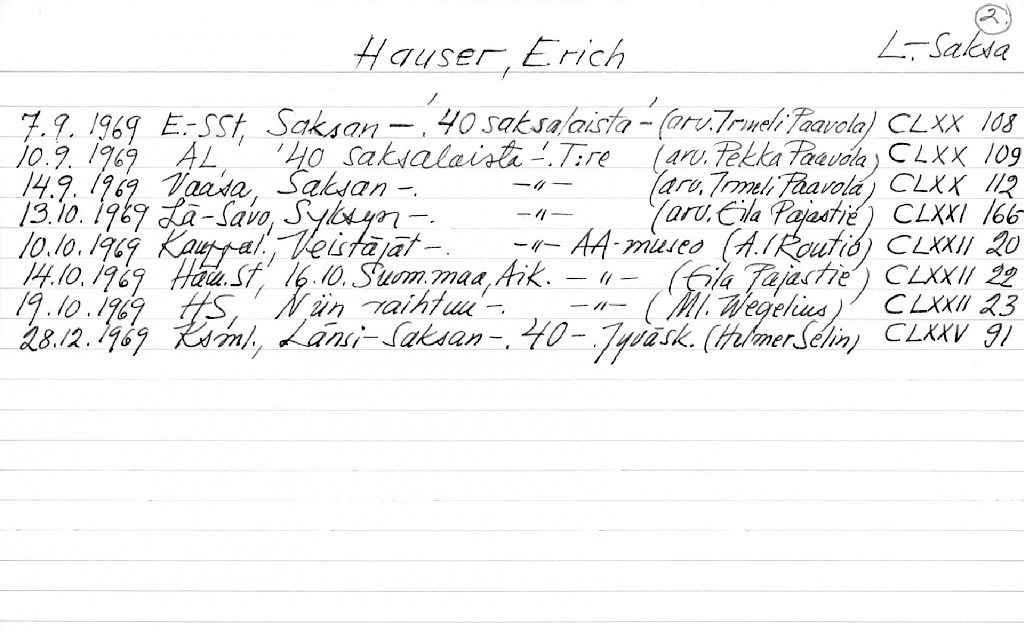 2.
Hauser, Erich L.-Saksa
7.9. 1969 E.-SSt, Saksan –. '40 saksalaista' – (arv. Irmeli Paavola) CLXX 108
10.9. 1969 AL '40 saksalaista'–. T:re (arv. Pekka Paavola) CLXX 109
14.9. 1969 Vaasa, Saksan –. –"– (arv. Irmeli Paavola) CLXX 112
13.10. 1969 Lä-Savo, Syksyn –. –"– (arv. Eila Pajastie) CLXXI 166
10.10. 1969 Kauppal., Veistäjät –. –"– AA-museo (A. I Routio) CLXXII 20
14.10. 1969 Häm.St, 16.10. Suom.maa, Aik. –"– (Eila Pajastie) CLXXII 22
19.10. 1969 HS, Niin vaihtuu –. –"– (Ml. Wegelius) CLXXII 23
28.12. 1969 Ksml., Länsi-Saksan –. '40 –. Jyväsk. (Hilmer Selin) CLXXV 91